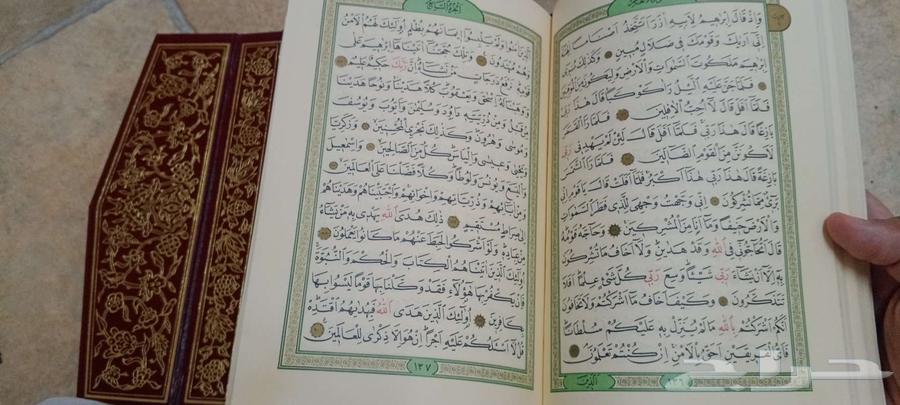 وَاِذْ قَالَ اِبْرٰهيمُ لِاَبيهِ اٰزَرَ اَتَتَّخِذُ اَصْنَامًا اٰلِهَةً
اِنّى اَرٰيكَ وَقَوْمَكَ فى ضَلَالٍ مُبينٍ وَكَذٰلِكَ نُرى
اِبْرٰهيمَ مَلَكُوتَ السَّمٰوَاتِ وَالْاَرْضِ وَلِيَكُونَ مِنَ الْمُوقِنينَ
فَلَمَّا جَنَّ عَلَيْهِ الَّيْلُ رَاٰ كَوْكَبًا قَالَ هٰذَا رَبّى
فَلَمَّا اَفَلَ قَالَ لَا اُحِبُّ الْاٰفِلينَ فَلَمَّا رَاَ الْقَمَرَ
بَازِغًا قَالَ هٰذَا رَبّى فَلَمَّا اَفَلَ قَالَ لَئِنْ لَمْ يَهْدِنى رَبّى
لَاَكُونَنَّ مِنَ الْقَوْمِ الضَّالّينَ فَلَمَّا رَاَ الشَّمْسَ
بَازِغَةً قَالَ هٰذَا رَبّى هٰذَا اَكْبَرُ فَلَمَّا اَفَلَتْ قَالَ يَا قَوْمِ اِنّى
بَرىءٌ مِمَّا تُشْرِكُونَ اِنّى وَجَّهْتُ وَجْهِىَ لِلَّذى فَطَرَ السَّمٰوَاتِ
وَالْاَرْضَ حَنيفًا وَمَا اَنَا مِنَ الْمُشْرِكينَ وَحَاجَّهُ قَوْمُهُ
قَالَ اَتُحَاجُّونّى فِى اللّٰهِ وَقَدْ هَدٰينِ وَلَا اَخَافُ مَا تُشْرِكُونَ
بِهِ اِلَّا اَنْ يَشَاءَ رَبّى شَيْئًا وَسِعَ رَبّى كُلَّ شَىْءٍ عِلْمًا اَفَلَا
تَتَذَكَّرُونَ وَكَيْفَ اَخَافُ مَا اَشْرَكْتُمْ وَلَا تَخَافُونَ
اَنَّكُمْ اَشْرَكْتُمْ بِاللّٰهِ مَا لَمْ يُنَزِّلْ بِهِ عَلَيْكُمْ سُلْطَانًا
فَاَىُّ الْفَريقَيْنِ اَحَقُّ بِالْاَمْنِ اِنْ كُنْتُمْ تَعْلَمُونَ
١٣٦
اَلَّذينَ
اَلْجُزْءُ السَّابِعُ
اَلَّذينَ اٰمَنُوا وَلَمْ يَلْبِسُوا ايمَانَهُمْ بِظُلْمٍ اُولٰئِكَ لَهُمُ الْاَمْنُ
وَهُمْ مُهْتَدُونَ وَتِلْكَ حُجَّتُنَا اٰتَيْنَاهَا اِبْرٰهيمَ عَلٰى
قَوْمِهِ نَرْفَعُ دَرَجَاتٍ مَنْ نَشَاءُ اِنَّ رَبَّكَ حَكيمٌ عَليمٌ
وَوَهَبْنَا لَهُ اِسْحٰقَ وَيَعْقُوبَ كُلًّا هَدَيْنَا وَنُوحًا هَدَيْنَا
مِنْ قَبْلُ وَمِنْ ذُرِّيَّتِهِ دَاوُدَ وَسُلَيْمٰنَ وَاَيُّوبَ وَيُوسُفَ
وَمُوسٰى وَهٰرُونَ وَكَذٰلِكَ نَجْزِى الْمُحْسِنينَ وَزَكَرِيَّا
وَيَحْيٰى وَعيسٰى وَاِلْيَاسَ كُلٌّ مِنَ الصَّالِحينَ وَاِسْمٰعيلَ
وَالْيَسَعَ وَيُونُسَ وَلُوطًا وَكُلًّا فَضَّلْنَا عَلَى الْعَالَمينَ
وَمِنْ اٰبَائِهِمْ وَذُرِّيَّاتِهِمْ وَاِخْوَانِهِمْ وَاجْتَبَيْنَاهُمْ وَهَدَيْنَاهُمْ
اِلٰى صِرَاطٍ مُسْتَقيمٍ ذٰلِكَ هُدَى اللّٰهِ يَهْدى بِهِ مَنْ يَشَاءُ
مِنْ عِبَادِهِ وَلَوْ اَشْرَكُوا لَحَبِطَ عَنْهُمْ مَا كَانُوا يَعْمَلُونَ
اُولٰئِكَ الَّذينَ اٰتَيْنَاهُمُ الْكِتَابَ وَالْحُكْمَ وَالنُّبُوَّةَ
فَاِنْ يَكْفُرْ بِهَا هٰؤُلَاءِ فَقَدْ وَكَّلْنَا بِهَا قَوْمًا لَيْسُوا بِهَا
بِكَافِرينَ اُولٰئِكَ الَّذينَ هَدَى اللّٰهُ فَبِهُدٰيهُمُ اقْتَدِهْ
قُلْ لَا اَسْئَلُكُمْ عَلَيْهِ اَجْرًا اِنْ هُوَ اِلَّا ذِكْرٰى لِلْعَالَمينَ
١٣٧
حراج